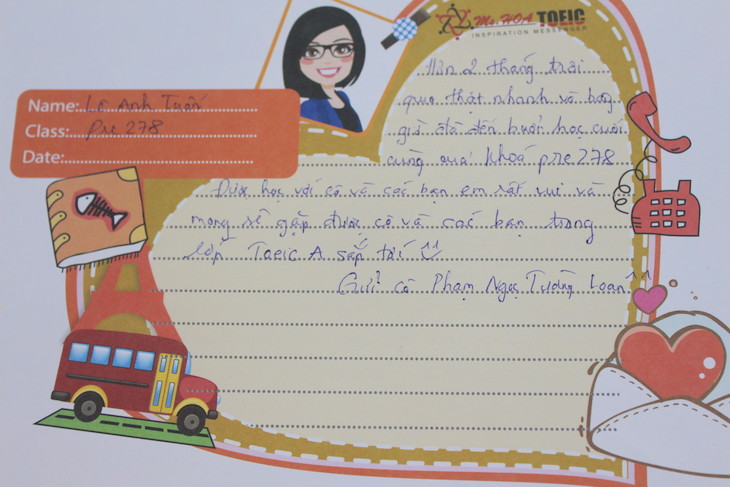 Ms. HOA TOEIC
INSPIRATION MESSENGER
Name: Lê Anh Tuấn
Class: Pre 278
Date:
Hơn 2 tháng trôi
qua thật nhanh và bây
giờ đã đến buổi học cuối
cùng của khoá pre 278
Được học với cô và các bạn em rất vui và
mong sẽ gặp được cô và các bạn trong
lớp Toeic A sắp tới
Gửi cô Phạm Ngọc Tường Loan ^^